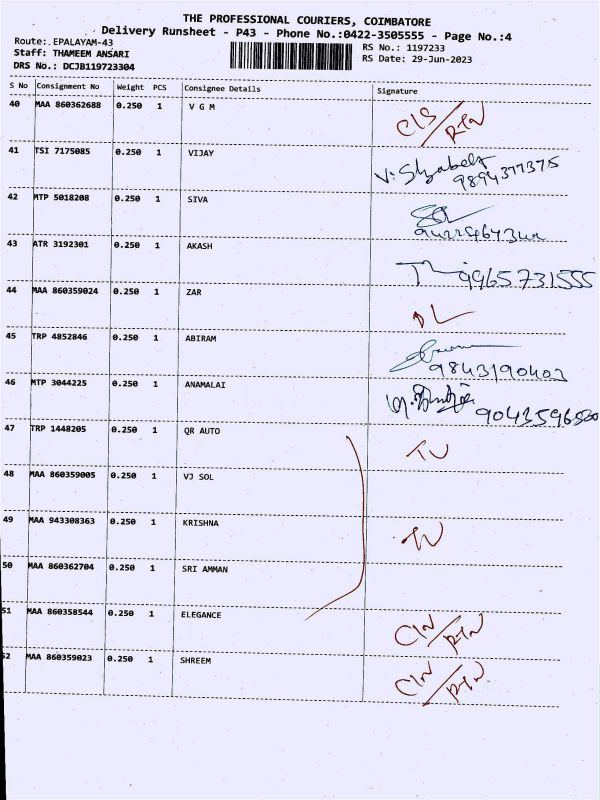 THE PROFESSIONAL COURIERS, COIMBATORE
Delivery Runsheet - P43 - Phone No.:0422-3505555 - Page No.:4
Route: EPALAYAM-43
RS No.: 1197233
Staff: THAMEEM ANSARI
RS Date: 29-Jun-2023
DRS No.: DCJB119723304
S No Consignment No Weight PCS Consignee Details Signature
40 MAA 860362688 0.250 1 V G M
CIS/RTN
41 TSI 7175085 0.250 1 VIJAY
9894377375
42 MTP 5018208 0.250 1 SIVA
43 ATR 3192301 0.250 1 AKASH
9965731555
44 MAA 860359024 0.250 1 ZAR
DL
45 TRP 4852846 0.250 1 ABIRAM
9843190402
46 MTP 3044225 0.250 1 ANAMALAI
47 TRP 1448205 0.250 1 QR AUTO
48 MAA 860359005 0.250 1 VJ SOL
49 MAA 943308363 0.250 1 KRISHNA
50 MAA 860362704 0.250 1 SRI AMMAN
51 MAA 860358544 0.250 1 ELEGANCE
CIN/RTN
52 MAA 860359023 0.250 1 SHREEM
CIN/RTN